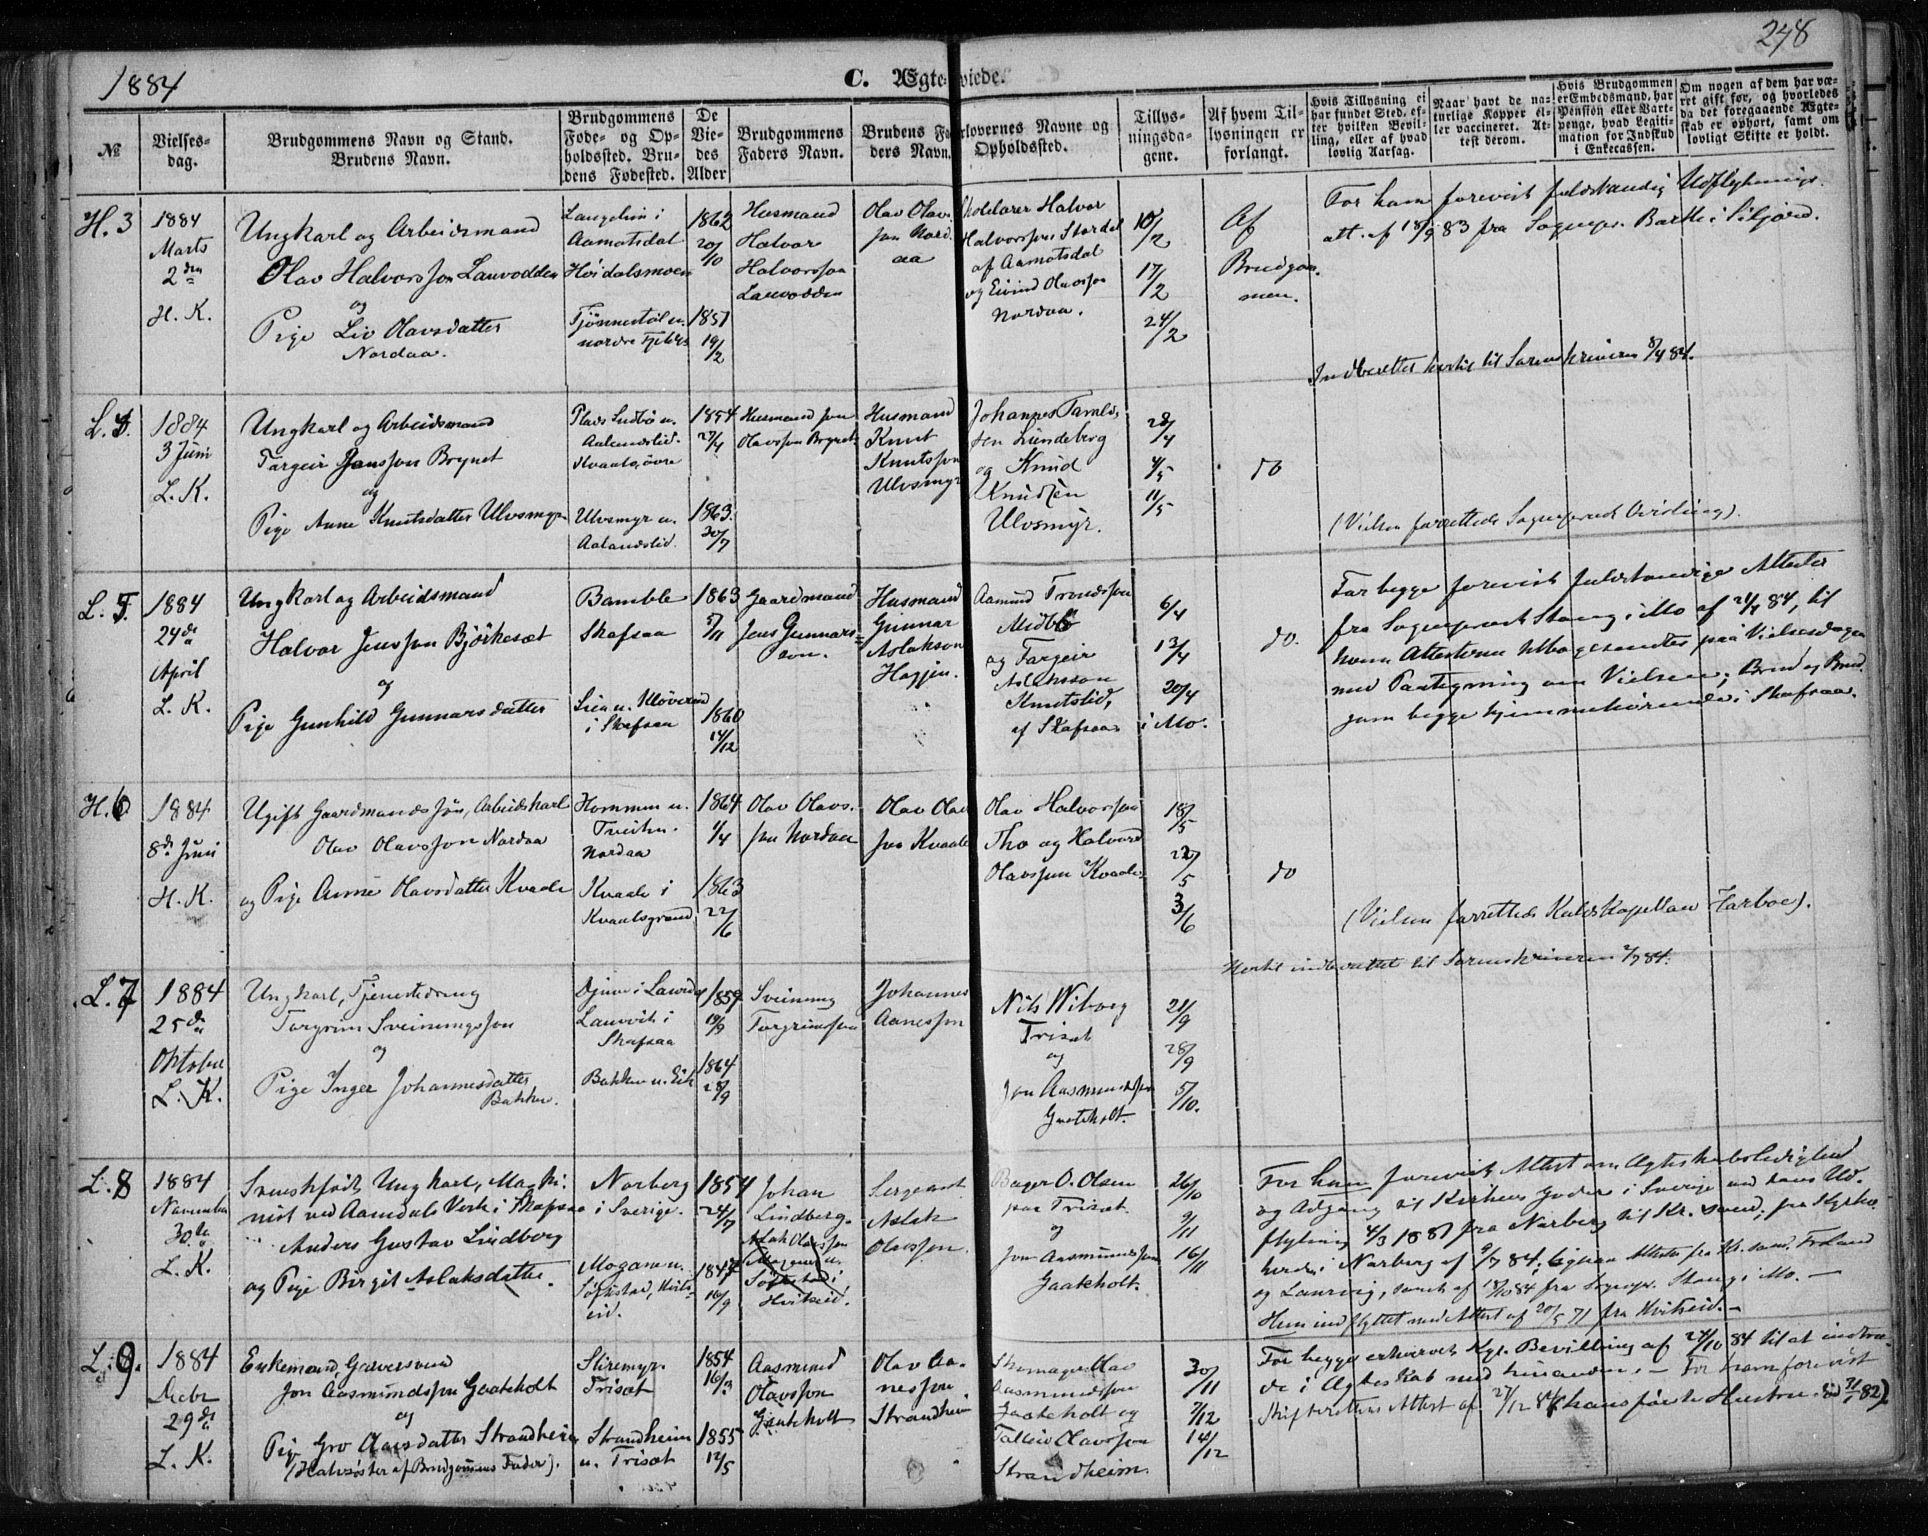 1884
C. Ægteviede.
248
№
Vielses-
dag.
Brudgommens Navn og Stand.
Brudens Navn.
Brudgommens
Føde- og Op-
holdssted. Bru-
dens Fødested.
De
Vie-
des
Alder
Brudgommens
Faders Navn.
Brudens Fa-
ders Navn.
Forlovernes Navne og
Opholdssted.
Tillys-
ningsda-
gene.
Af hvem Til-
lysningen er
forlangt.
Hvis Tillysning ei
har fundet Sted, ef-
ter hvilken Bevil-
ling, eller af hvad
lovlig Aarsag.
Naar havt de na-
turlige Kopper el-
ler vaccineret. At-
test derom.
Hvis Brudgommen
er Embedsmand, har
Pension eller Varte-
penge, hvad Legiti-
mation for Indskud
i Enkecassen.
Om nogen af dem har væ-
ret gift før, og hvorledes
da det foregaaende Ægte-
skab er ophørt, samt om
lovligt Skifte er holdt.
H. 3
1884
Marts
2den
H. K.
Ungkarl og Arbeidsmand
Olav Halvorsson Lauvodden
og
Pige Liv Olavsdatter
Nordaa.
Langelim i
Aamotsdal
Høidalsmoen
Tjønnestøl u.
nordre
1862
20/10
1851
19/2
Husmand
Halvor
Halvorsson
Lauvodden
Olav Olav-
son Nord-
aa
Skolelærer Halvor
Halvorsson Stordal
af Aamotsdal
og Eivind Olavsson
Nordaa.
10/2
17/2
24/2
Af
Brudgom-
men.
For ham forevist fuldstændig Udflytnings-
att. af 18/9 83 fra Sognepr. Barth i Siljord.
Indberettet hertil til Sorenskriveren 8/4 84.
L. 4.
1884
3 Juni
L. K.
Ungkarl og Arbeidsmand
Targeir Jonsson Brynet
og
Pige Anne Knutsdatter Ulvsmyr
Plads u.
Aalandslid.
Kvaalsøvre
Ulvsmyr u.
Aalandslid.
1854
27/4
1863.
30/7
Husmand Jon
Olavsson Brynet
Husmand
Knut
Knutsson
Ulvsmyr
Johannes
sen Lundeberg
og Knud
Knudsen
Ulvsmyr.
28/4
4/5
11/5
do
(Vielsen forrettede Sogneprest).
L. 5.
1884
24de
April
L. K.
Ungkarl og Arbeidsmand
Halvor Jensson Bjørkesæt
og
Pige Gunhild Gunnarsdatter
Bamble
Skafsaa
Lien u. Kløvereid
i Skafsaa
1863
5/11
1860
14/12
Gaardmand
Jens Gunnars=
son.
Husmand
Gunnar
Aslakson
Haggen.
Aamund Trondsson
Midbø
og Targeir
Aslaksson
Knutslid,
af Skafsaa i Mo.
6/4
13/4
20/4
do.
For begge forevist fuldstændige Attester
fra Sogneprest Stang i Mo af 21/4 84, til
hvem Attesterne tilbagesendtes paa Vielsesdagen
med Paategning om Vielsen; Brud og Brud-
gom begge hjemmehørende i Skafsaa.
H. 6
1884
8de Juni
H. K.
Ugift Gaardmandssøn, Arbeidskarl
Olav Olavsson Nordaa
og Pige Anne Olavsdatter Kvaale
Hommen u.
Tveiten.
Nordaa
Kvaale i
Kvaalsgrend
1864
1/4
1863
22/6
Olav Olavs-
son Nordaa
Olav Olav-
son Kvaale
Olav Halvorsson
Tho og Halvord
Olavsson Kvaale
18/5
22/5
3/6
do
(Vielsen forrettede Kaldskapellan Tarboe).
Hertil indberettet til Sorenskriveren 2/7 84.
L. 7
1884
25de
Oktober
L. K.
Ungkarl, Tjenestedreng
Torgrim Sveinungsson
og
Pige Inger Johannesdatter
Bakken.
Djuve i Laurdal
Lauvvik i
Skafsaa
Bakken u. Eik
1859
19/9
1864
28/9
Sveinung
Torgrimsson
Johannes
Aanesson
Nils Wiborg
Trisæt
og
Jon Aasmundsson
Gaateholt.
21/9
28/9
5/10.
L. 8
1884
November
30te
L. K.
Svenskfødt Ungkarl, Maski-
nist ved Aamdals Verk i Skafsaa
Anders Gustav Lindberg
og Pige Birgit Aslaksdatter.
Norberg
i Sverige.
Mogaren u.
Søftestad, Kvits-
eid.
1854
24/7
1847
16/9
Johan
Lindberg.
Aslak Olavsson
Mogaren u.
Søftestad i
Hviteseid.
Sergeant
Aslak
Olavsson.
Bager O. Olsen
paa Trisæt
og
Jon Aasmundsson
Gaateholt.
26/10
9/11
16/11
For ham forevist Attest om Ægteskabsledighed
og Adgang til Kirkens Goder i Sverige ved hans Ud-
flytning 4/3 1881 fra Norberg til Kr.sand; fra Kyrko-
herden i Norberg af 9/7 84; Lignen Attester fra Kr.sand, Froland
og Laurvig, samt af 18/10 84 fra Sognepr. Stang i Mo. —
Hun indflyttet med Attest af 20/5 71 fra Hviteseid. —
L. 9.
1884
Decbr
29de
L. K.
Enkemand
Jon Aasmundsson Gaateholt
og
Pige Gro Olavsdatter Strandheim
(Halvsøster af Brudgommens Fader).
Stiremyr.
Trisæt
Strandheim
u. Trisæt
1854
16/3
1855
12/5
Aasmund
Olavsson
Gaateholt
Olav Aa-
nesson
Strandheim
Skomager Olav
Aasmundsson
Gaateholt og
Tallev Olavsson
Strandheim.
30/11
7/12
14/12
For begge erhvervet Kgl. Bevilling af 24/10 84 til at indtræ-
de i Ægteskab med hinanden. — For ham forevist
Skifterettens Attest af 27/12 84 (hans første Hustru død 82).